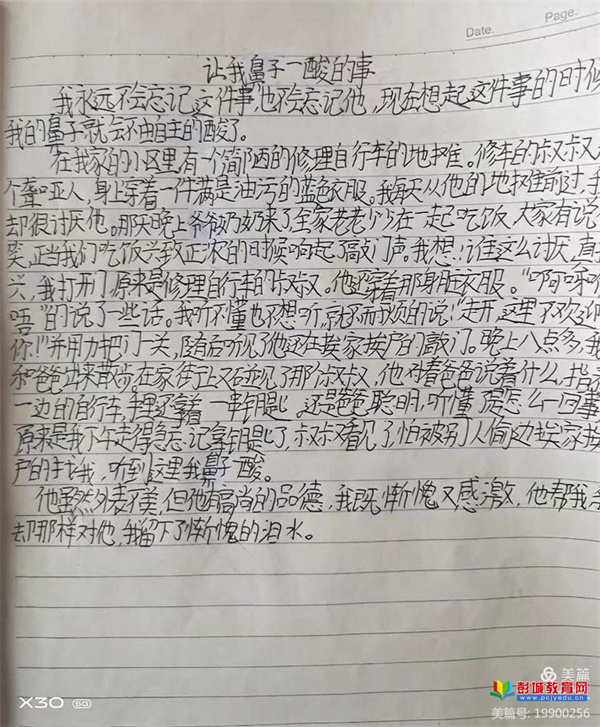 Date.
Page.
让我鼻子一酸的事
我永远不会忘记这件事也不会忘记他，现在想起这件事的时候
我的鼻子就会不由自主的酸了。
在我家的小区里有一个简陋的修理自行车的地摊。修车的叔叔
个聋哑人，身上穿着一件满是油污的蓝色衣服。我每天从他的地摊前过，
却很讨厌他。那天晚上爷爷奶奶来了全家老老少少在一起吃饭，大家有说
笑，正当我们吃饭兴致正浓的时候响起了敲门声。我想：谁这么讨厌，真
兴，我打开门原来是修理自行车的叔叔。他还穿着那身脏衣服。“啊
唔”的说了一些话。我听不懂也不想听，就不耐烦的说！“走开，这里不欢迎
你！”并用力把门一关，随后听见了他还在挨家挨户的敲门。晚上八点多，我
和爸爸出来散步。在家街上又碰见了那叔叔，他对着爸爸说着什么，指
一边的自行车，手里还拿着一串钥匙，还是爸爸聪明，听懂了是怎么一回事
原来是我下午走得急忘记拿钥匙了，叔叔看见了怕被别人偷边挨家挨
户的找我，听到这里我鼻子一酸。
他虽然外表不美，但他有高尚的品德，我既惭愧又感激，他帮我
却那样对他，我留下了惭愧的泪水。
X30 5G
美篇
彭城教育网
www.pcjyedu.cn
美篇号: 19900256